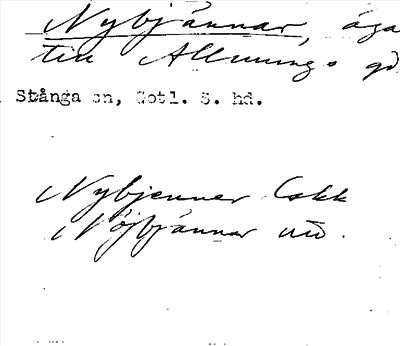 Nybjännar, äga
till Allmungs gd
Stånga sn, Gotl. S. hd.
Nybjenner Cskk
Nöjbjánnar utt.